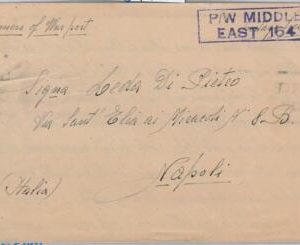 Prisoners of War post
P/W MIDDLE
EAST /164
Signa Leda Di Pietro
Via Sant' Elia ai Miracoli N 8 B.
Napoli
(Italia)